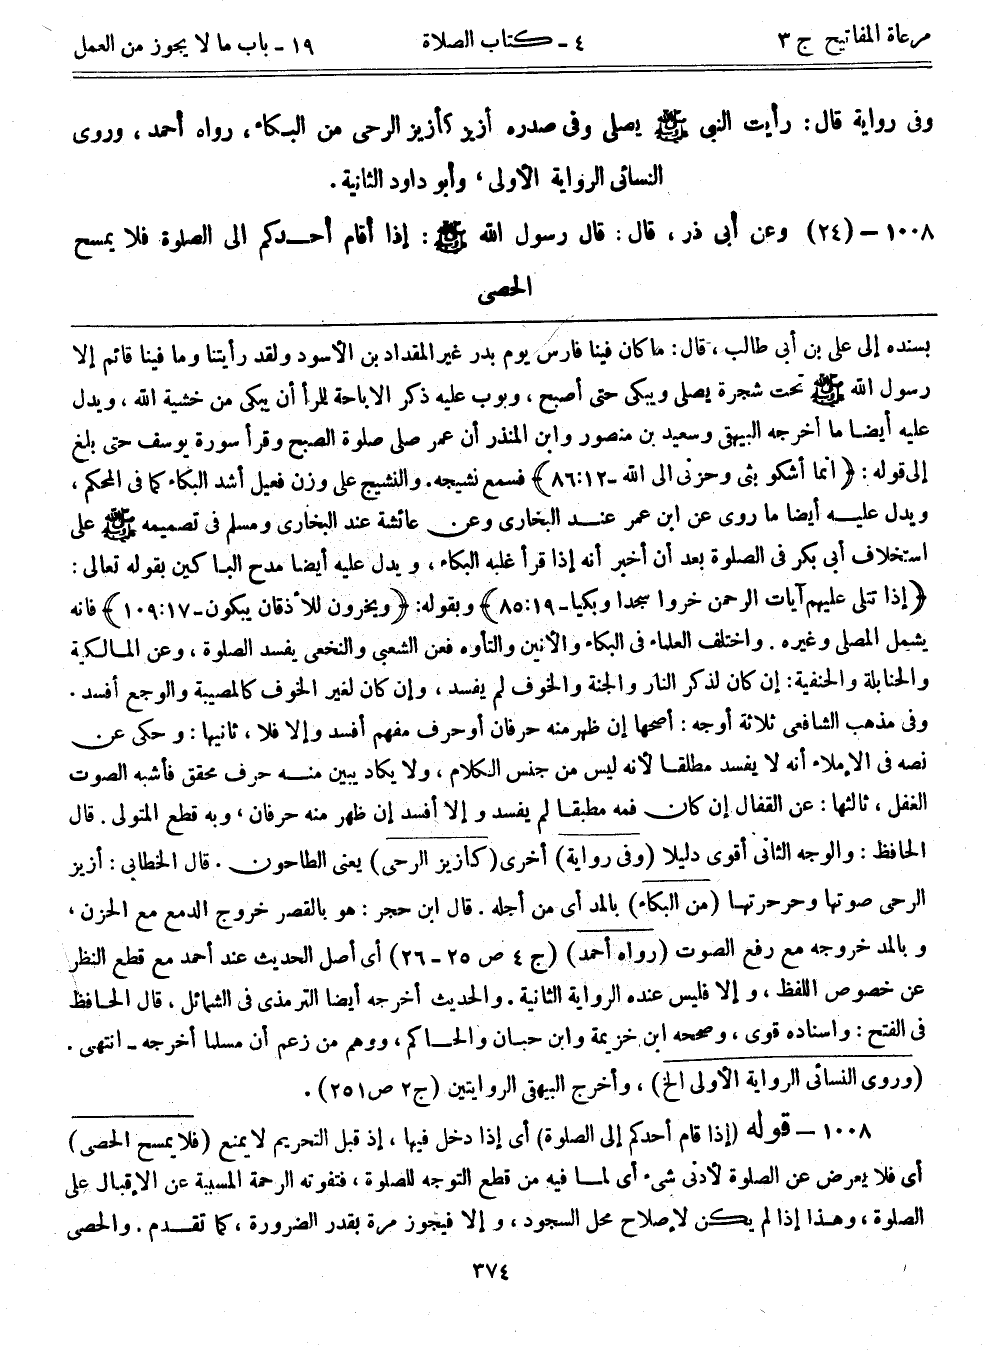 مرعاة المفاتيح ج ٣ ٤ - كتاب الصلاة ١٩ - باب ما لا يجوز من العمل
وفى رواية قال: رأيت النبى ﷺ يصلى وفى صدره أزيز كأزيز الرحى من البكاء، رواه أحمد، وروى
النسائى الرواية الأولى، وأبو داود الثانية.
١٠٠٨ – (٢٤) وعن أبى ذر، قال: قال رسول الله ﷺ: إذا أقام أحدكم الى الصلوة فلا يمسح
الحصى
بسنده إلى على بن أبى طالب، قال: ماكان فينا فارس يوم بدر غير المقداد بن الأسود ولقد رأيتنا وما فينا قائم إلا
رسول الله ﷺ تحت شجرة يصلى ويبكى حتى أصبح، وبوب عليه ذكر الاباحة للرأ أن يبكى من خشية الله، ويدل
عليه أيضا ما أخرجه البيهقى وسعيد بن منصور وابن المنذر أن عمر صلى صلوة الصبح وقرأ سورة يوسف حتى بلغ
إلى قوله: ﴿انما أشكو بثى وحزنى الى الله -٨٦:١٢﴾ فسمع نشيجه. والنشيج على وزن فعيل أشد البكاء كما فى المحكم،
ويدل عليه أيضا ما روى عن ابن عمر عند البخارى وعن عائشة عند البخارى ومسلم فى تصميمه ﷺ على
استخلاف أبى بكر فى الصلوة بعد أن أخبر أنه إذا قرأ غلبه البكاء، ويدل عليه أيضا مدح الباكين بقوله تعالى:
﴿إذا تتلى عليهم آيات الرحمن خروا سجدا وبكيا-٨٥:١٩﴾ وبقوله: ﴿ويخرون للأذقان يبكون-١٠٩:١٧﴾ فانه
يشمل المصلى وغيره. واختلف العلماء فى البكاء والأنين والتأوه فعن الشعبى والنخعى يفسد الصلوة، وعن المالكية
والحنابلة والحنفية: إن كان لذكر النار والجنة والخوف لم يفسد، وإن كان لغير الخوف كالمصيبة والوجع أفسد.
وفى مذهب الشافعى ثلاثة أوجه: أصحها إن ظهر منه حرفان أو حرف مفهم أفسد وإلا فلا، ثانيها: وحكى عن
نصه فى الإملاء أنه لا يفسد مطلقا لأنه ليس من جنس الكلام، ولا يكاد يبين منه حرف محقق فأشبه الصوت
الغفل، ثالثها: عن القفال إن كان فمه مطبقا لم يفسد وإلا أفسد إن ظهر منه حرفان، وبه قطع المتولى. قال
الحافظ: والوجه الثانى أقوى دليلا (وفى رواية) أخرى (كأزيز الرحى) يعنى الطاحون. قال الخطابى: أزيز
الرحى صوتها وحرحرتها (من البكاء) بالمد أى من أجله. قال ابن حجر: هو بالقصر خروج الدمع مع الحزن،
وبالمد خروجه مع رفع الصوت (رواه أحمد) (ج ٤ ص ٢٥-٢٦) أى أصل الحديث عند أحمد مع قطع النظر
عن خصوص اللفظ، وإلا فليس عنده الرواية الثانية. والحديث أخرجه أيضا الترمذى فى الشمائل، قال الحافظ
فى الفتح: واسناده قوى، وصححه ابن خزيمة وابن حبان والحاكم، ووهم من زعم أن مسلما أخرجه - انتهى.
(وروى النسائى الرواية الأولى الخ)، وأخرج البيهقى الروايتين (ج٢ ص٢٥١).
١٠٠٨ – قوله (إذا قام أحدكم إلى الصلوة) أى إذا دخل فيها، إذ قبل التحريم لا يمنع (فلا يمسح الحصى)
أى فلا يعرض عن الصلوة لأدنى شىء أى لما فيه من قطع التوجه للصلوة، فتفوته الرحمة المسببة عن الإقبال على
الصلوة، وهذا إذا لم يكن لإصلاح محل السجود، وإلا فيجوز مرة بقدر الضرورة، كما تقدم. والحصى
٣٧٤